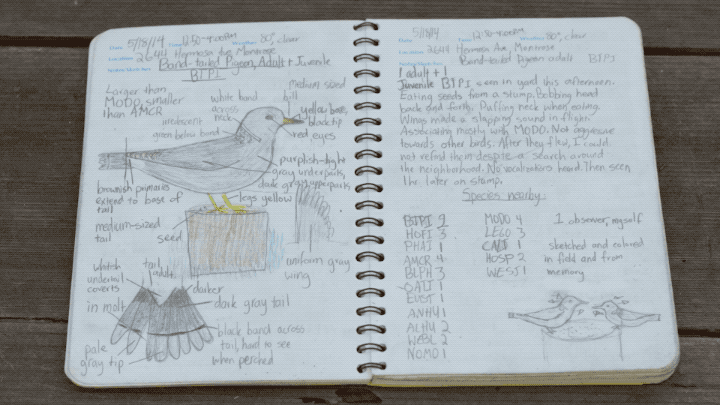 Date: 5/18/14 Time: 12:30-4:00PM Weather: 80°, clear
Location: 2644 Hermosa Ave, Montrose
Band-tailed Pigeon, Adult + Juvenile
BTPI
Larger than
MODO, smaller
than AMCR
white band
across
neck
iridescent
green below band
medium sized
bill
yellow base,
black tip
red eyes
purplish-light
gray underparts,
dark gray upperparts
brownish primaries
extend to base of
tail
legs yellow
medium-sized
tail
seed
uniform gray
wing
whitish
undertail
coverts
tail
adult
darker
in molt
dark gray tail
pale
gray tip
black band across
tail, hard to see
when perched
5/18/14 12:30-4:00PM 80°, clear
Location: 2644 Hermosa Ave, Montrose
Band-tailed Pigeon adult BTPI
1 adult + 1
Juvenile BTPI seen in yard this afternoon.
Eating seeds from a stump. Bobbing head
back and forth. Puffing neck when eating.
Wings made a slapping sound in flight.
Associating mostly with MODO. Not aggressive
towards other birds. After they flew, I could
not refind them despite a search around
the neighborhood. No vocalizations heard. Then seen
later on stump.
Species nearby:
BTPI 2
HOFI 3
PHAI 1
AMCR 4
BLPH 3
OATI 1
EUST 1
ANHU 1
ALHU 2
WEBL 2
NOMO 1
MODO 4
LEGO 3
CALT 1
HOSP 2
WESJ 1
1 observer, myself
sketched and colored
in field and from
memory